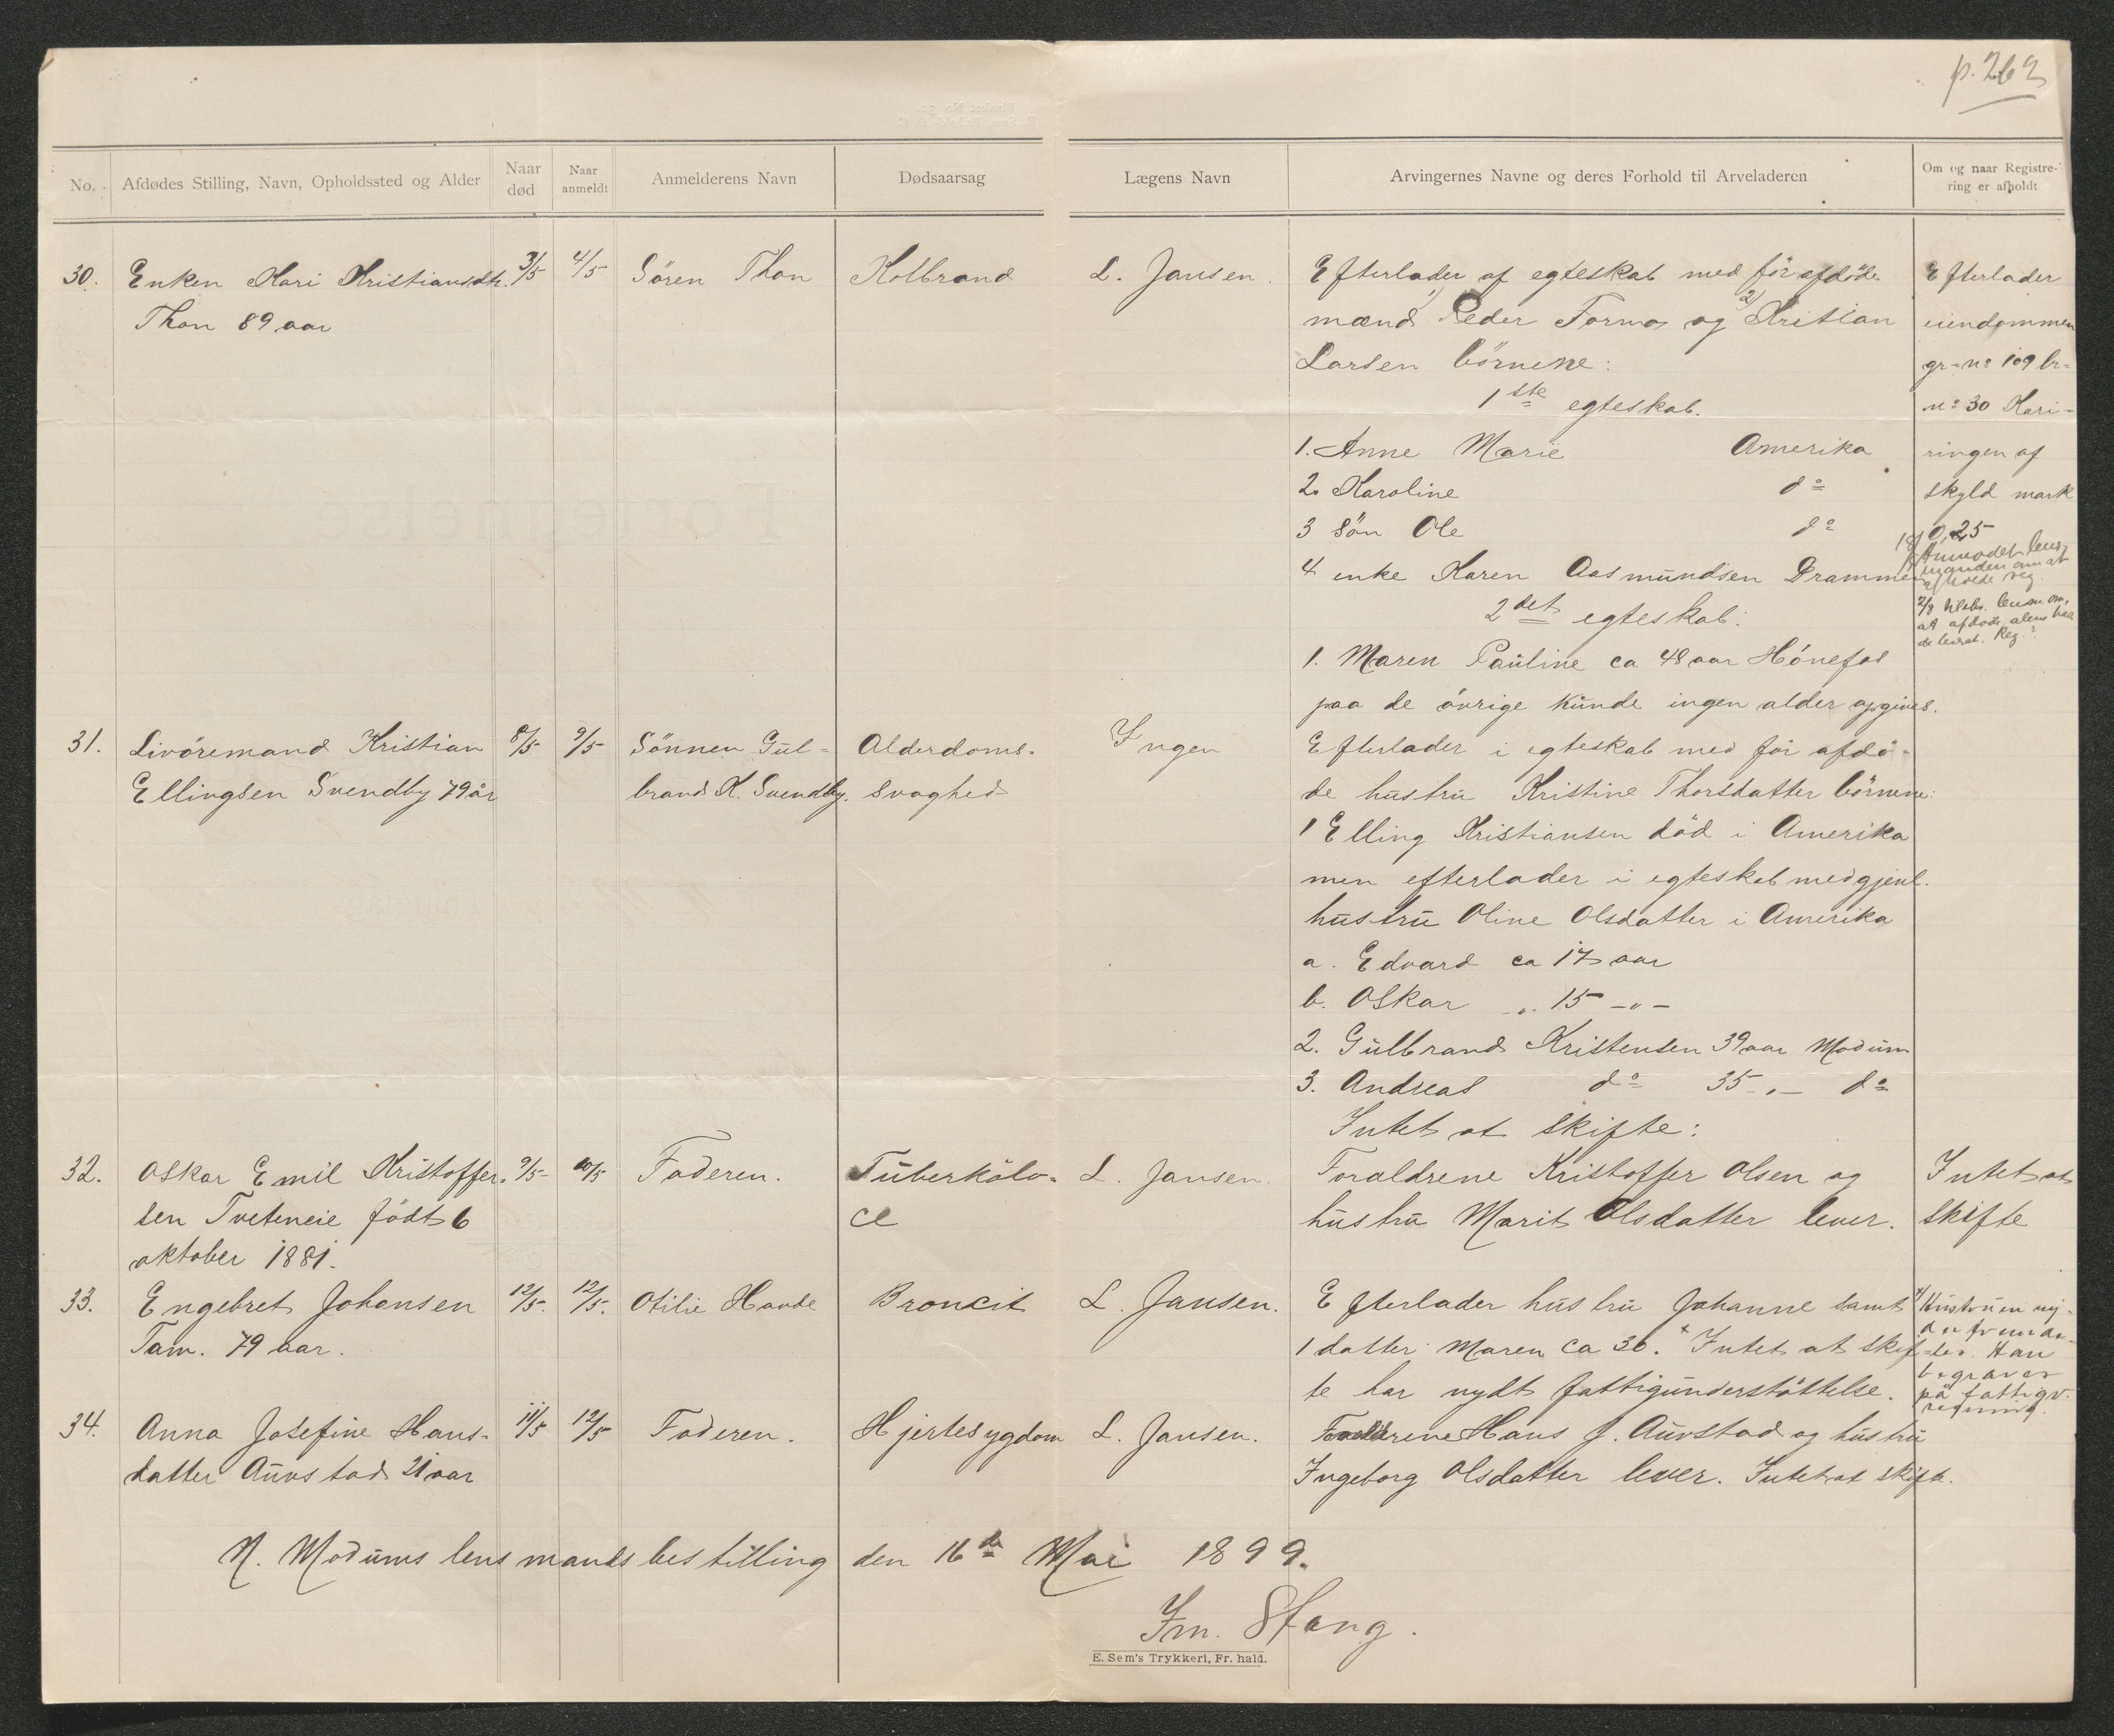 p. 262
No. Afdødes Stilling, Navn, Opholdssted og Alder Naar død Naar anmeldt Anmelderens Navn Dødsaarsag Lægens Navn Arvingernes Navne og deres Forhold til Arveladeren Om og naar Registrering er afholdt
30. Enken Kari Kristiansdtr. 3/5 4/5 Sören Thon Kolbrand L. Jansen.
Thon 89 aar
Efterlader af egteskab med för afdöde
mænd 1) Peder Formo og 2) Kristian
Larsen börnene:
1ste egteskab.
1. Anne Marie Amerika
2. Karoline do
3 Sön Ole do
4 enke Karen Aasmundsen Drammen
2det egteskab:
1. Maren Pauline ca 48 aar Hönefos
paa de övrige kunde ingen alder opgives.
Efterlader
eiendommen
gr-no 109 br-
no 30 Kari-
ringen af
skyld mark
0,25
Anmodet lens-
manden om at
afholde reg.
31. Livöremand Kristian 8/5 9/5 Sönnen Gul- Alderdoms- Ingen
Ellingsen Svendby 79 år brand K. Svendby. svaghed
Efterlader i egteskab med för afdö-
de hustru Kristine Thorsdatter börnene:
1 Elling Kristiansen död i Amerika
men efterlader i egteskab med gjenl.
hustru Oline Olsdatter i Amerika
a. Edvard ca 17 aar
b. Oskar „ 15 -„-
2. Gulbrand Kristensen 39 aar Modum
3. Andreas do 35 -„- do
Intet at skifte:
32. Oskar Emil Kristoffer- 9/5 10/5 Faderen. Tuberkölo- L. Jansen.
sen Tveteneie födt 6 ce
oktober 1881.
Forældrene Kristoffer Olsen og
hustru Marit Olsdatter lever.
Intet at
skifte
33. Engebret Johansen 12/5. 12/5. Otilie Hovde Broncit L. Jansen.
Tam. 79 aar.
Efterlader hustru Johanne samt
1 datter Maren ca 36. x Intet at skif-
te har nydt fattigunderstöttelse.
x) Hustruen ny-
der fremde-
les. Han
begraves
på fattigv.
regning.
34. Anna Josefine Hans- 11/5 12/5 Faderen. Hjertesygdom L. Jansen.
datter Aurstad 21 aar
Forældrene Hans J. Aurstad og hustru
Ingeborg Olsdatter lever. Intet at skifte.
N. Modums lensmandsbestilling den 16de Mai 1899.
Im. Stang.
E. Sem's Trykkeri, Fr. hald.